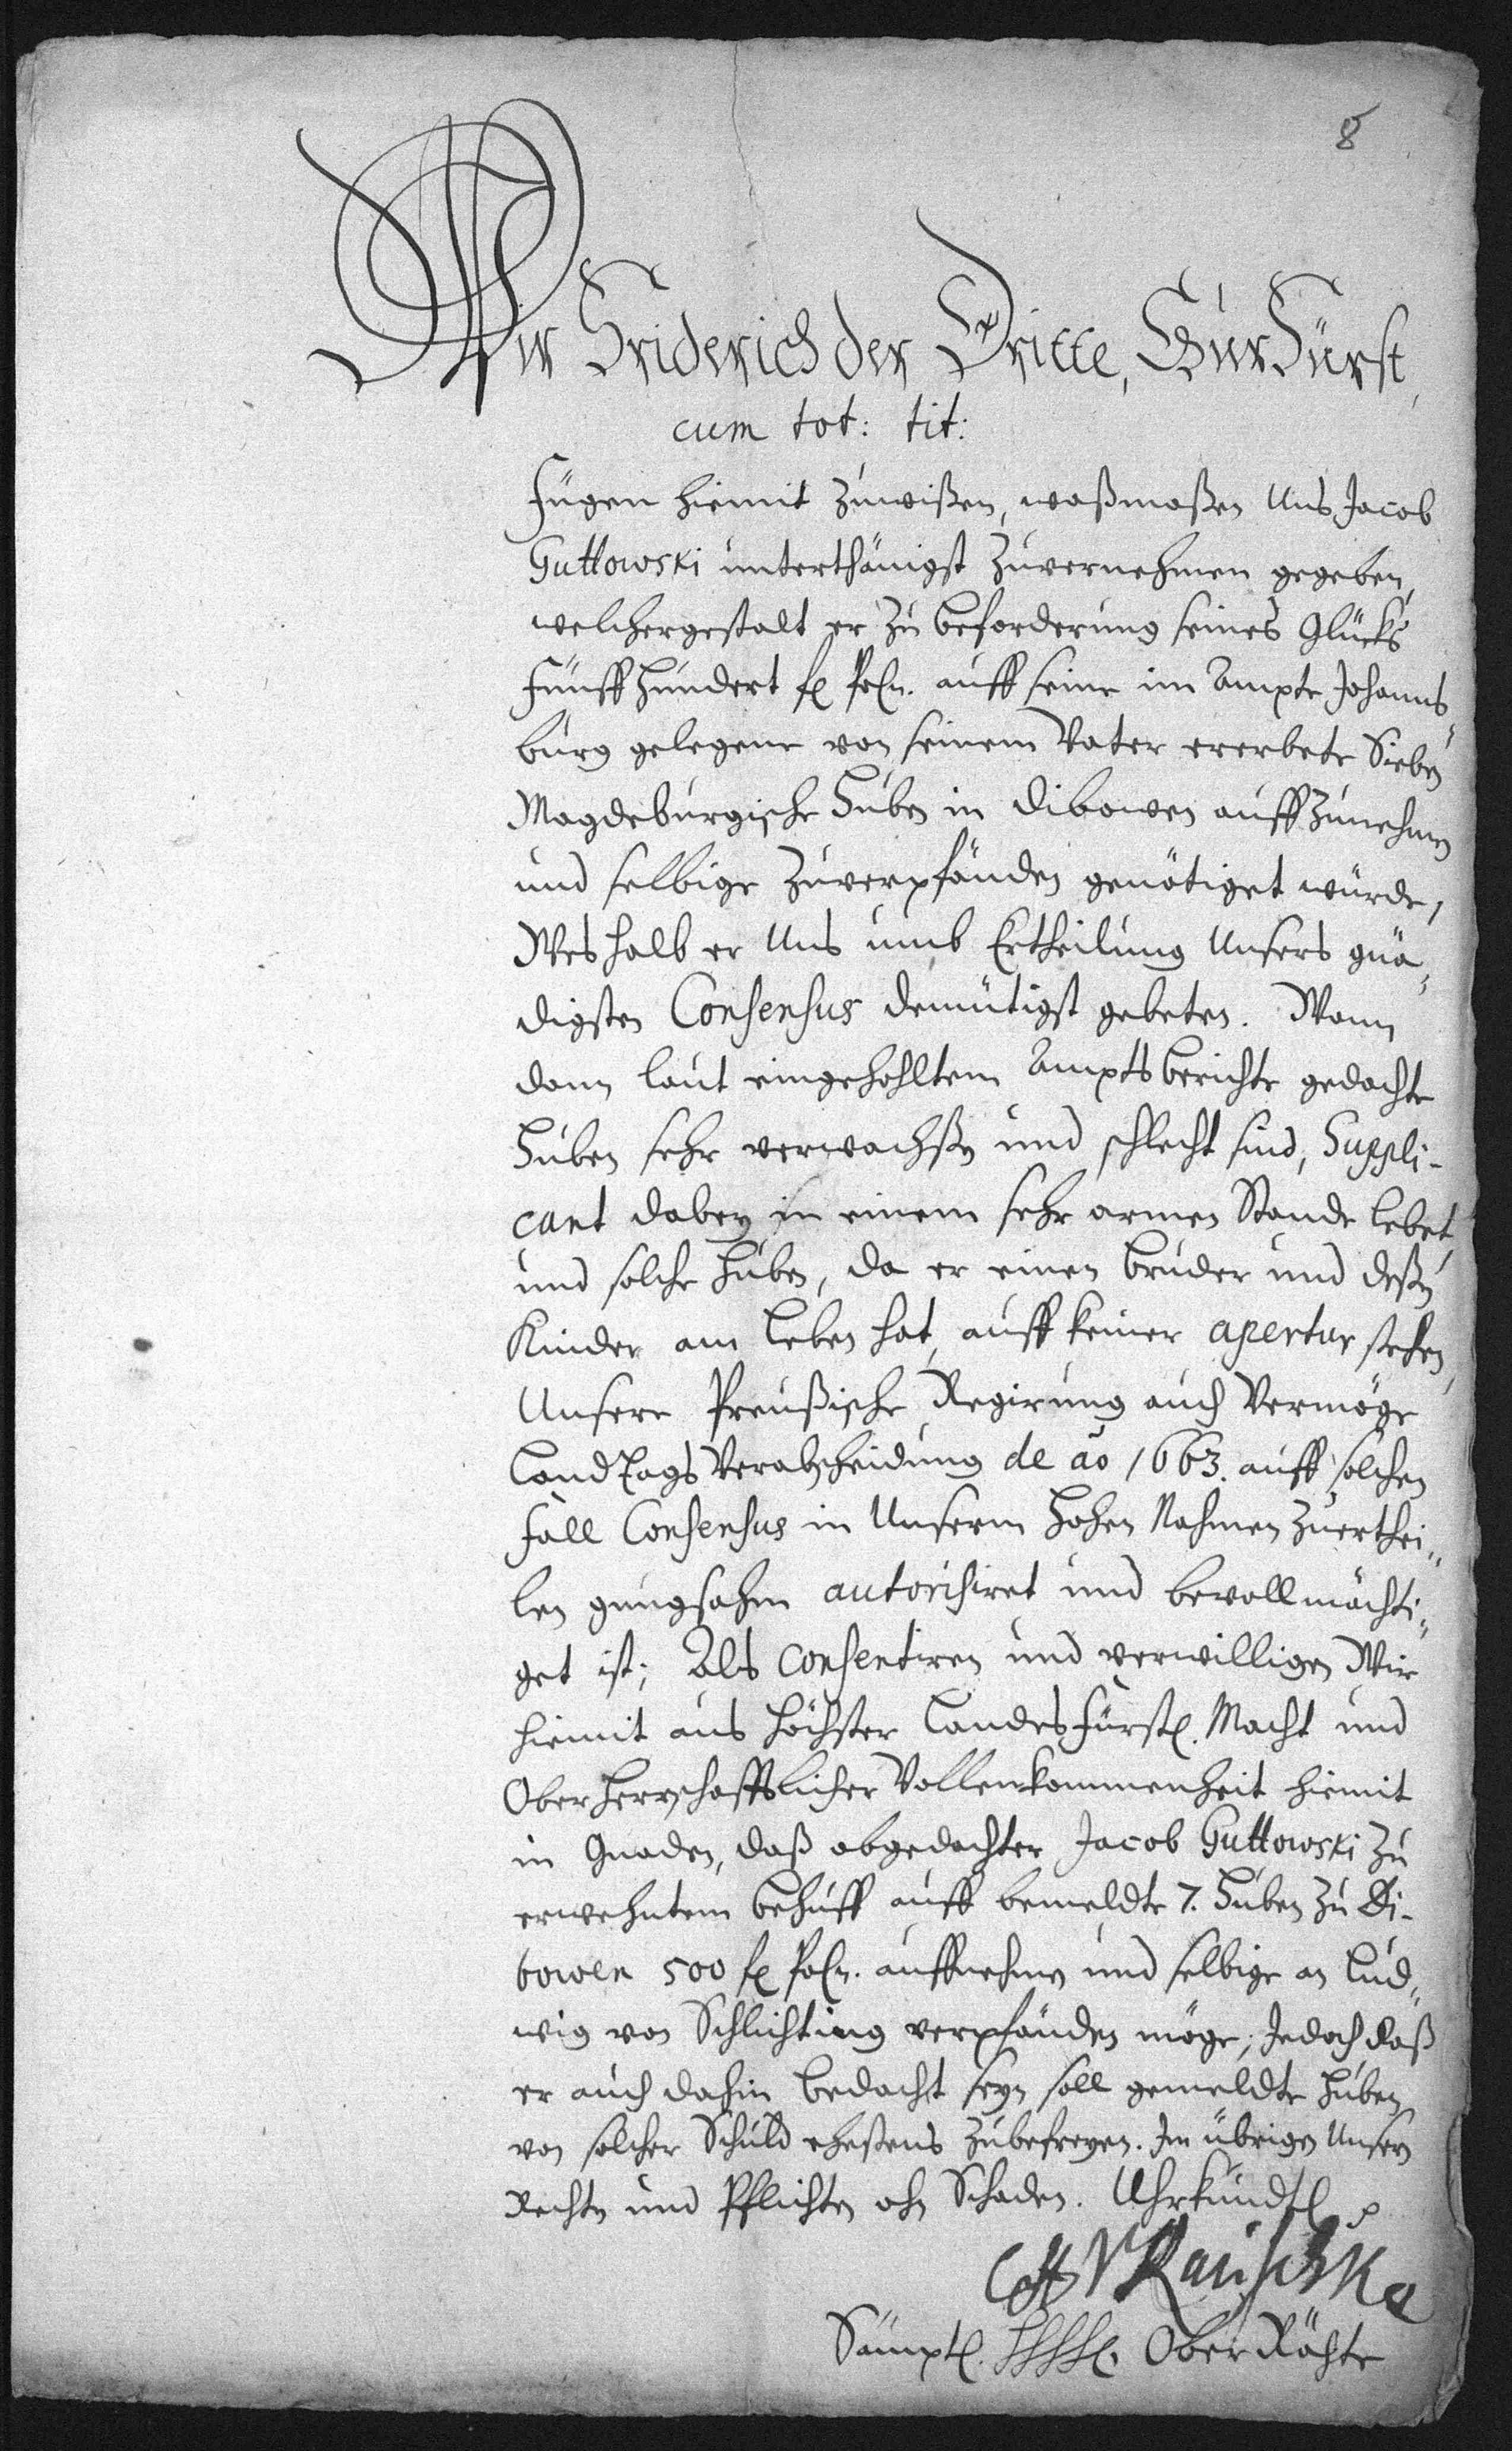 8
Wir Friderich der Dritte, ChurFürst,
cum tot: tit:
Fügen hiemit zuwißen, waßmaßen Uns Jacob
Guttowski unterthänigst zuvernehmen gegeben,
welchergestalt er zu beforderung seines Glücks
Fünffhundert fl Poln. auff seine im Ampte Johanns-
burg gelegene von seinem Vater ererbete Sieben
Magdeburgische Huben in Dibowen auffzunehmen
und selbige zuverpfänden genötiget würde,
Weshalb er Uns umb Ertheilung Unsers gnä-
digsten Consensus demütigst gebeten. Wann
dann laut eingehohltem Ampts berichte gedachte
Huben sehr verwachßen und schlecht sind, Suppli-
cant dabey in einem sehr armen Stande lebet
und solche Huben, da er einen bruder und deßen
Kinder am Leben hat, auff keiner apertur stehen,
Unsere Preußische Regirung auch Vermöge
LandTags Verabscheidung de ao 1663. auff solchen
fall Consensus in Unserm Hohen Nahmen zuerthei-
len gnugsahm autorisiret und bevollmächti-
get ist; Als consentiren und verwilligen Wir
hiemit aus höchster LandesFürstl. Macht und
OberHerrschafftlicher Vollenkommenheit hiemit
in Gnaden, daß obgedachter Jacob Guttowski zu
erwehntem behuff auff bemeldte 7. Huben zu Di-
bowen 500 fl Poln. auffnehmen und selbige an Lud-
wig von Schlichting verpfänden möge; Jedoch daß
er auch dahin bedacht seyn soll gemeldte Huben
von solcher Schuld ehestens zubefreyen. Im übrigen Unsern
Rechten und Pflichten ohn Schaden. Uhrkundtl
V Rauschke
Sämptl. Ober Rähte